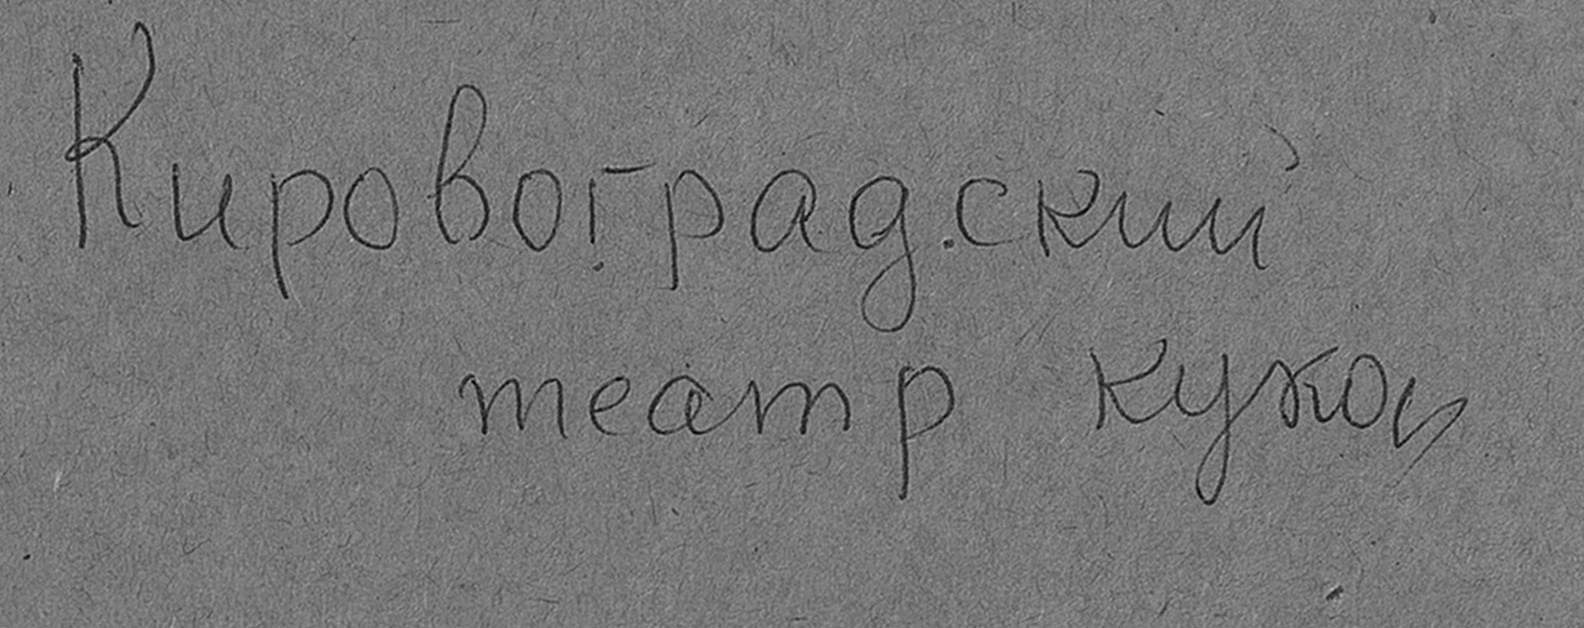 Кировоградский
театр кукол